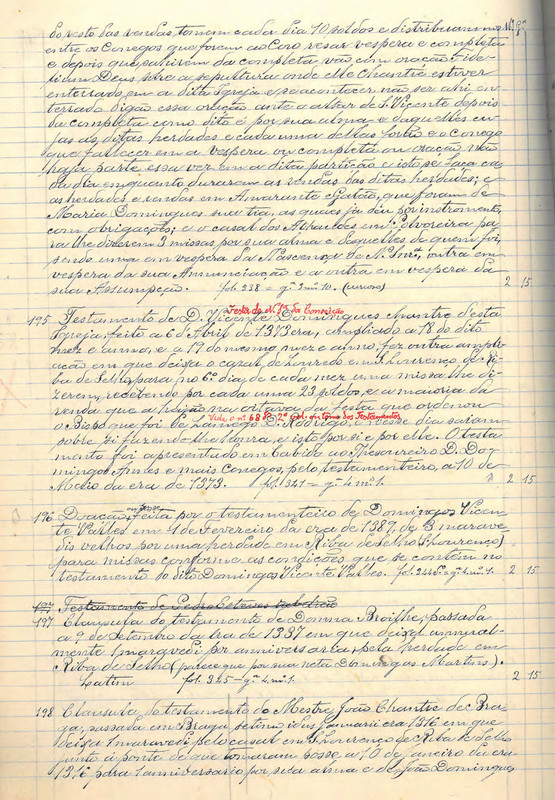 do resto das rendas, tomem cada dia 10 soldos e distribuam-nos
entre os Conegos que forem ao Coro resar vespera e completa
e depois que sahirem da completa vão com oração e
Deus sobre a sepultura onde elle Chantre estiver
enterrado em a dita Igreja e se acontecer não ser ahi en-
terrado digão essa oração ante o altar de S. Vicente depois
da completa como dito é por sua alma e daquelles cu-
jas as ditas herdades e cada uma dellas forão e o Conego
que fallecer em a vespera ou completa ou oração não
haja parte essa vez em a dita partição e isto se faça ca-
da dia emquanto durarem as rendas das ditas herdades; e
as herdades e rendas em Amarante e Gatão, que foram de
Maria Domingues sua tia, as quaes ja deu por instrumento,
com obrigações; e o casal dos Athaudes em Polvoreira pa-
ra lhe dizerem 3 missas por sua alma e daquelles de quem foi,
sendo uma em vespera da Nascença de N. Snrª, outra em
vespera da sua Annunciação e a outra em vespera da
sua Assumpção. fol. 238 = gª 2 mº 10. (curioso) 2 15
Festa de N. Sª da Conceição
195 Testamento de D. Vicente Domingues chantre d'esta
Igreja feito a 6 de Abril de 1373 era, ampliado a 18 do dito
mez e anno, e a 19 do mesmo mez e anno, fez outra ampli-
ação em que deixa o casal de Louredo em S. Lourenço de Ri-
ba de Selho para no 6º dia de cada mez uma missa lhe di-
zerem, recebendo por cada uma 23 soldos, e a maioria da
renda que a hajão na oitava da festa que ordenou
Vide o nº 68 8º 2º vol. em Tombo dos Testamentos
o Bispo que foi de Lamego D. Rodrigo, e nesse dia saiam
sobre si fazendo-lhe honra, e isto por si e por elle. O testa-
mento foi apresentado em Cabido ao Thesoureiro D. Do-
mingos Annes e mais Conegos, pelo testamenteiro, a 10 de
Maio da era de 1373. fol. 341 = gª 4 mº 1. 2 15
196 Doação feita por o testamenteiro de Domingos Vicen-
te Valles em 4 de Fevereiro da era de 1389, de 3 marave-
dis velhos por uma herdade em Riba de Selho (S. Lourenço)
para missas conforme as condições que se contém no
testamento do dito Domingos Vicente Valles. fol. 244 = gª 4 mº 1. 2 15
197 Testamento de Pedro Esteves tabelião
197. Clausula do testamento de Donna Broilhe, passada
a 9 de Setembro da era de 1337 em que deixa annual-
mente 1 maravedi por anniversario, pela herdade em
Riba de Selho (parece que por sua neta Domingas Martins).
Latim fol. 345 = gª 4 mº 1. 2 15
198 Clausula do testamento do Mestre João Chantre de Bra-
ga, passada em Braga setimo idus Januarii era 1316 em que
deixa 1 maravedi pelo casal em S. Lourenço de Riba de Selho
junto á ponte de que tomaram posse a 10 de Janeiro da era
1316 para 1 anniversario por sua alma e de João Domingues